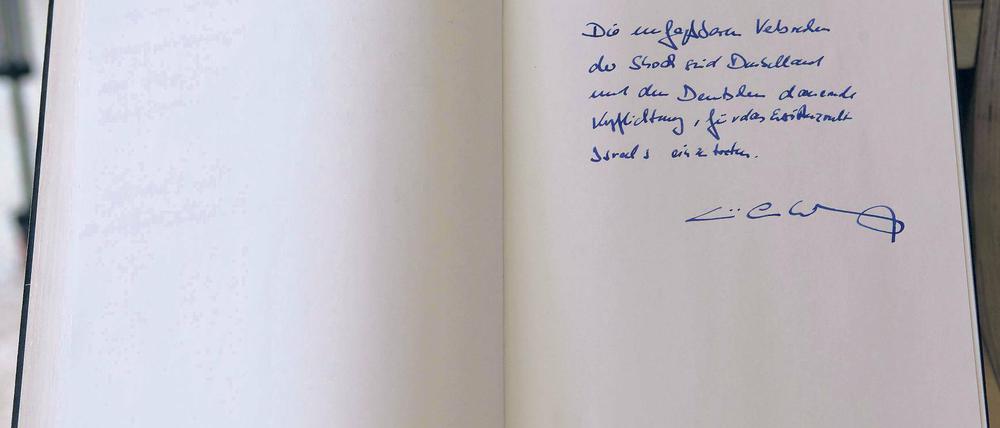 Die unfaßbaren Verbrechen
der Shoah sind Deutschland
und den Deutschen dauernde
Verpflichtung, für das Existenzrecht
Israels einzutreten.